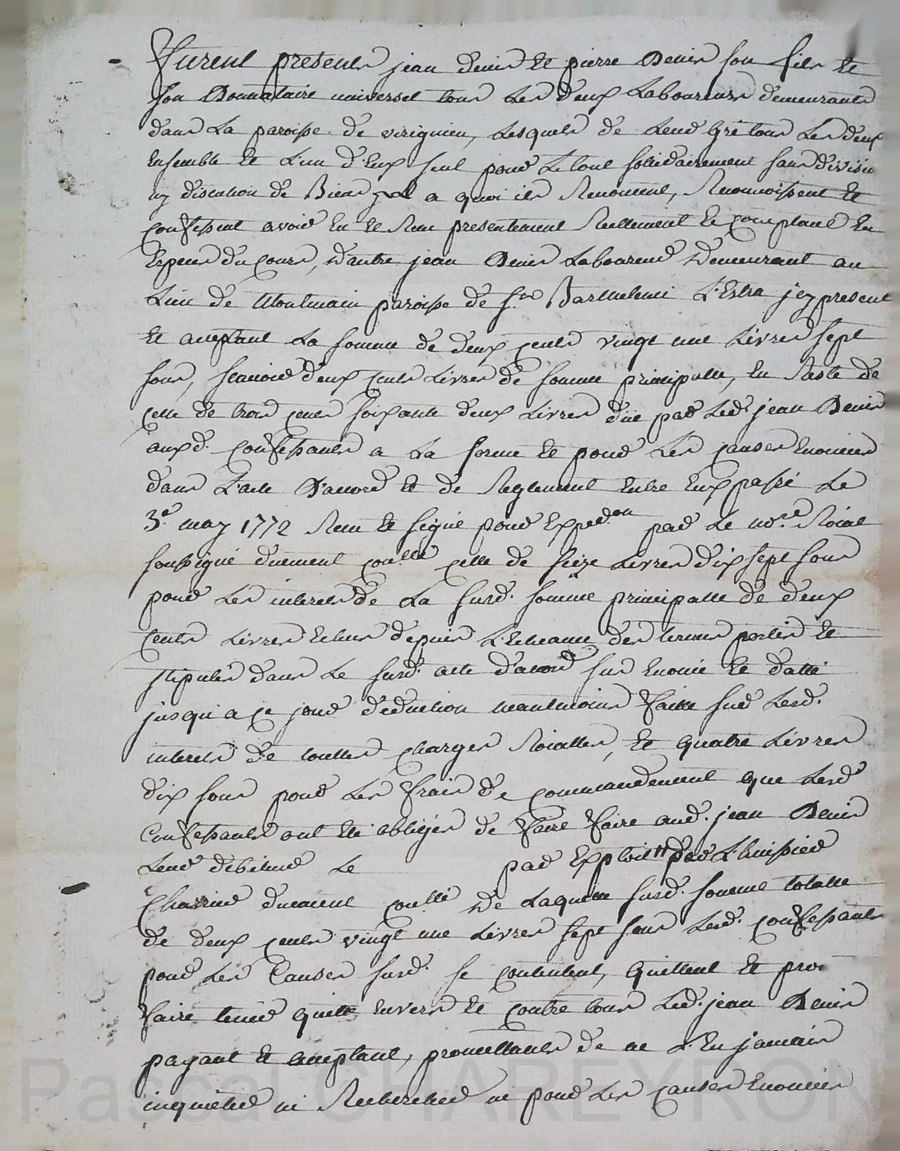 Furent presents jean denis et pierre Denis son fils et
son Donnataire universel tous les deux Laboureurs demeurants
dans la paroisse de virignieu, Lesquels de Leurs gré tous les deux
ensemble et L'un d'Eux seul pour Le tout solidairement sans division
ny discution de Biens a quoi ils Renoncent, Reconnoissent et
confessent avoir eu et Reçu presentement Reellement et comptant en
Especes du cours, D'autre jean Denis Laboureur Demeurant au
Lieu de Montmain paroisse de St Barthelemi L'Estra jcy present
et acceptant La somme de deux cents vingt une Livres sept
sous, scavoir deux cents Livres de somme principalle, en Reste de
celle de trois cents soixante deux Livres düe par Ledt jean Denis
auxd. confessants a La forme et pour Les causes Enoncées
dans L'acte D'accord et de Reglement Entre Eux passé Le
3e may 1772 Reçu et signé pour Expedon par Le nore Roial
soussigné duement conllé celle de seize Livres dix sept sous
pour Les interets de La susd. somme principalle de deux
cents Livres Echus depuis L'Echeance des termes portés et
stipulés dans Le susd. acte d'accord sus Enoncé et datté
jusqu'a ce jour déduction neantmoins faitte sur Lesd.
interets de touttes charges Roialles, et quatre Livres
dix sous pour Les frais de commandement que Lesds
Confessants ont été obligés de faire faire aud. jean Denis
Leur débiteur Le par Exploit par L'huissier
duement conllé De Laquelle susd. somme totalle
de deux cents vingt une Livres sept sous Lesd. confessants
pour Les Causes susd. se contentent, quittent et
faire tenir quitte Envers et contre tous Ledt jean Denis
payant et acceptant, promettants de ne L'En jamais
inquieter ni Rechercher ni pour Les causes Enoncées
Pascal CHAREYRON